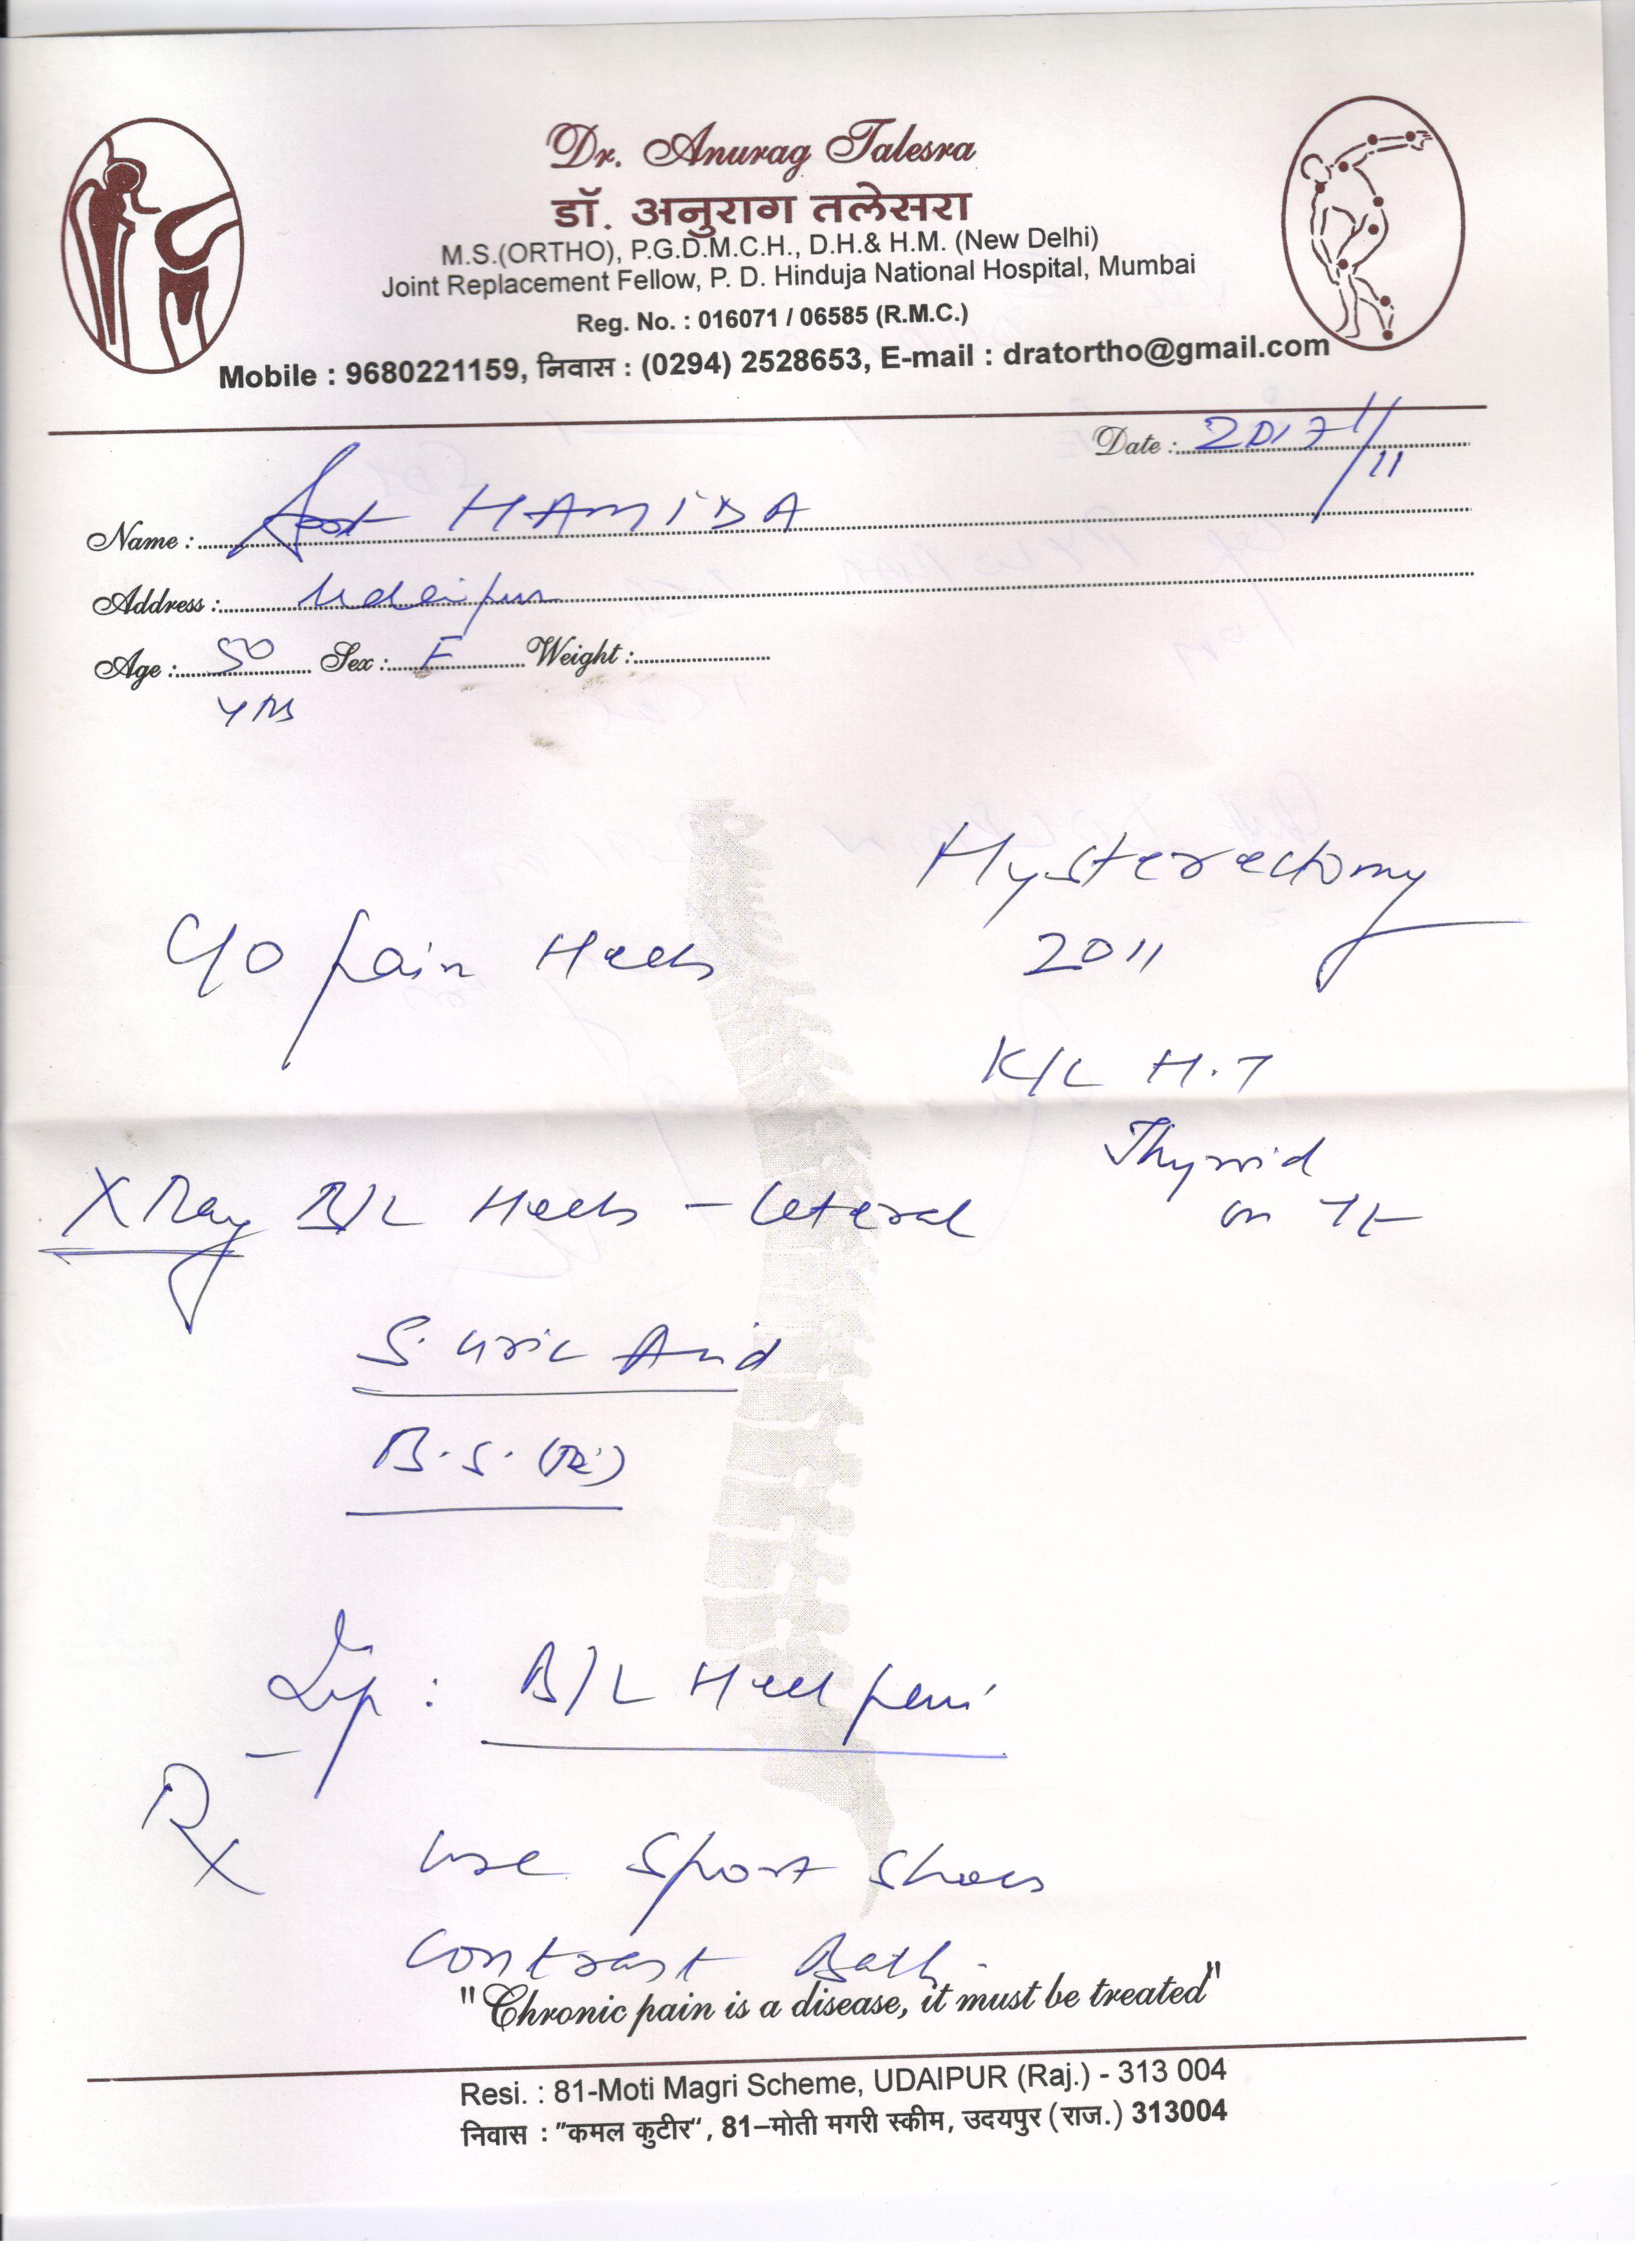 Dr. Anurag Talesra
डॉ. अनुराग तलेसरा
M.S.(ORTHO), P.G.D.M.C.H., D.H.& H.M. (New Delhi)
Joint Replacement Fellow, P. D. Hinduja National Hospital, Mumbai
Reg. No. : 016071 / 06585 (R.M.C.)
Mobile : 9680221159, निवास : (0294) 2528653, E-mail : dratortho@gmail.com
Date :
Name : HAMIDA
Address : Udaipur
Age : 50 Sex : F Weight :
yrs
Hysterectomy
2011
C/O Pain Heels
K/C H.T
Thyroid
on
X Ray B/L Heels - Lateral
S. Uric Acid
B.S. (R)
Imp : B/L Heel pain
Rx
Use Sport Shoes
Contrast Bath
"Chronic pain is a disease, it must be treated"
Resi. : 81-Moti Magri Scheme, UDAIPUR (Raj.) - 313 004
निवास : "कमल कुटीर", 81–मोती मगरी स्कीम, उदयपुर (राज.) 313004